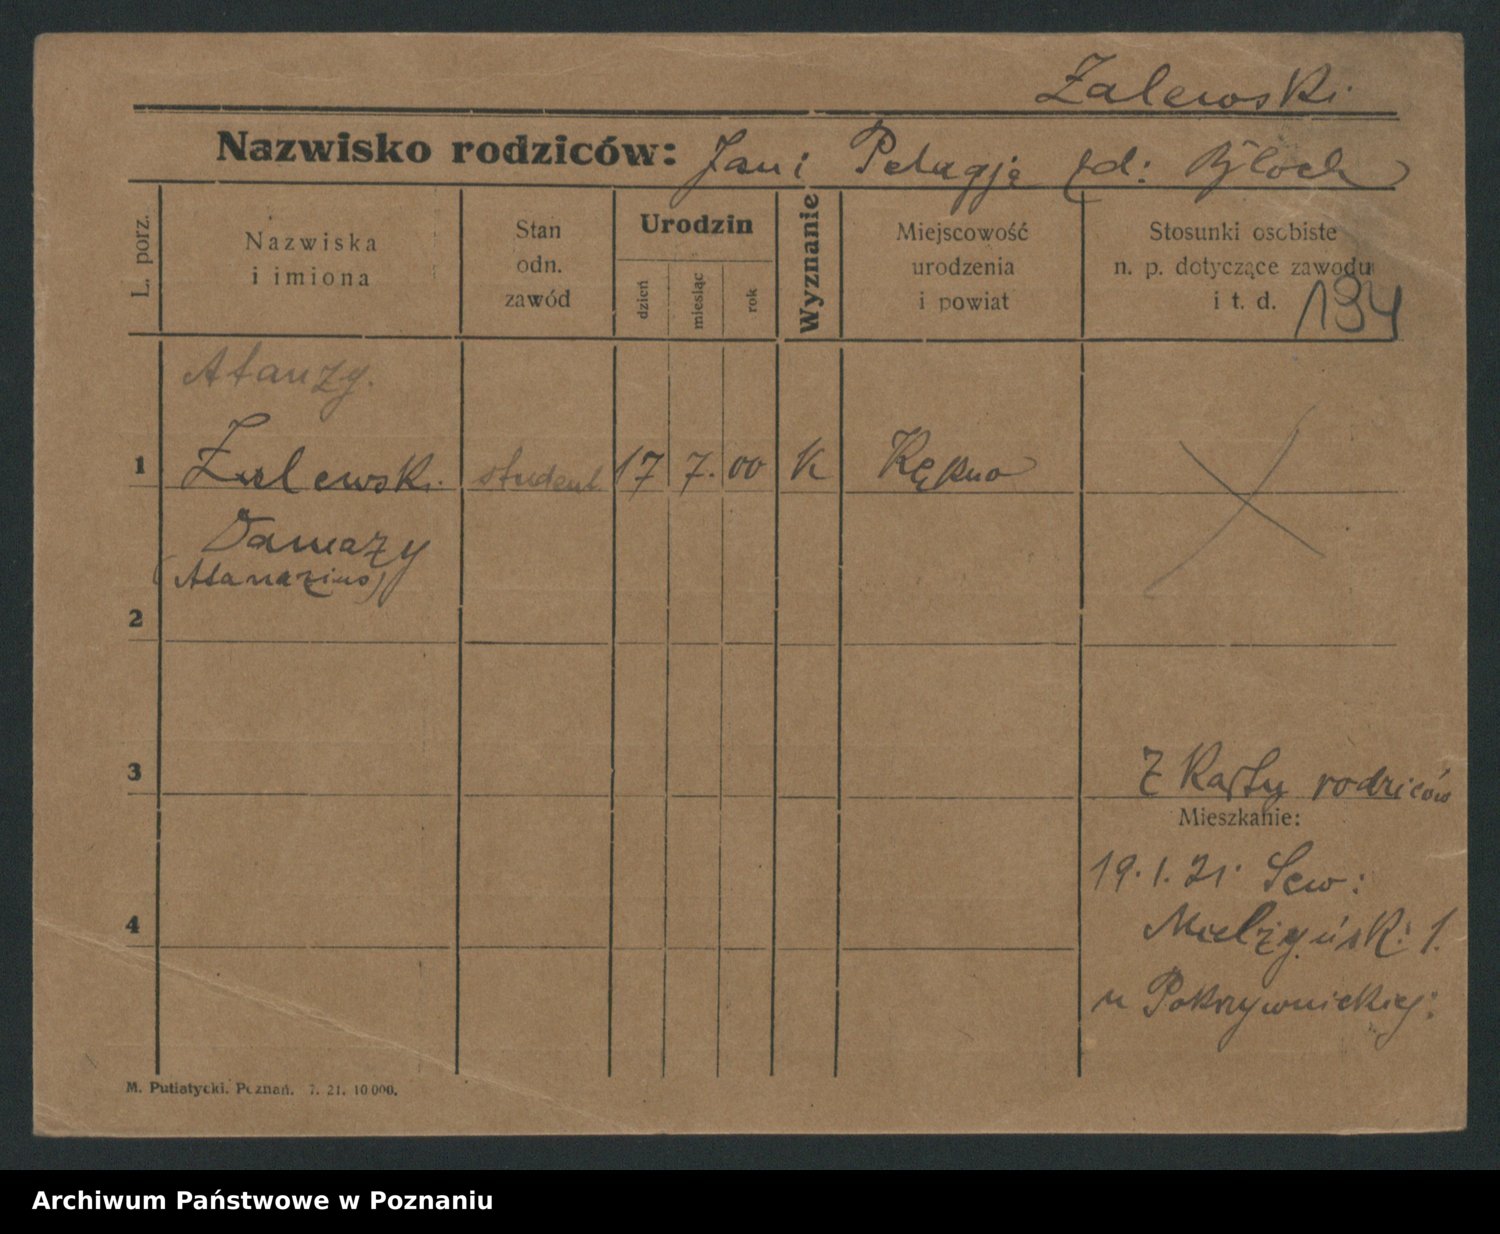 Zalewski
Nazwisko rodziców: Jan i Pelagja zd: Bloch
L. porz.
Nazwiska
i imiona
Stan
odn.
zawód
Urodzin
dzień
miesiąc
rok
Wyznanie
Miejscowość
urodzenia
i powiat
Stosunki osobiste
n. p. dotyczące zawodu
i t. d.
194
Atanzy.
1 Zalewski student 17 7. 00 K
Damazy
(Atanazius)
2
3
Z Karty rodziców
Mieszkanie:
19. 1. 21. Sew:
Mielżyńsk: 1.
4
u Pokrzywnickiej:
M. Putiatycki. Poznań. 7. 21. 10 000.
Archiwum Państwowe w Poznaniu